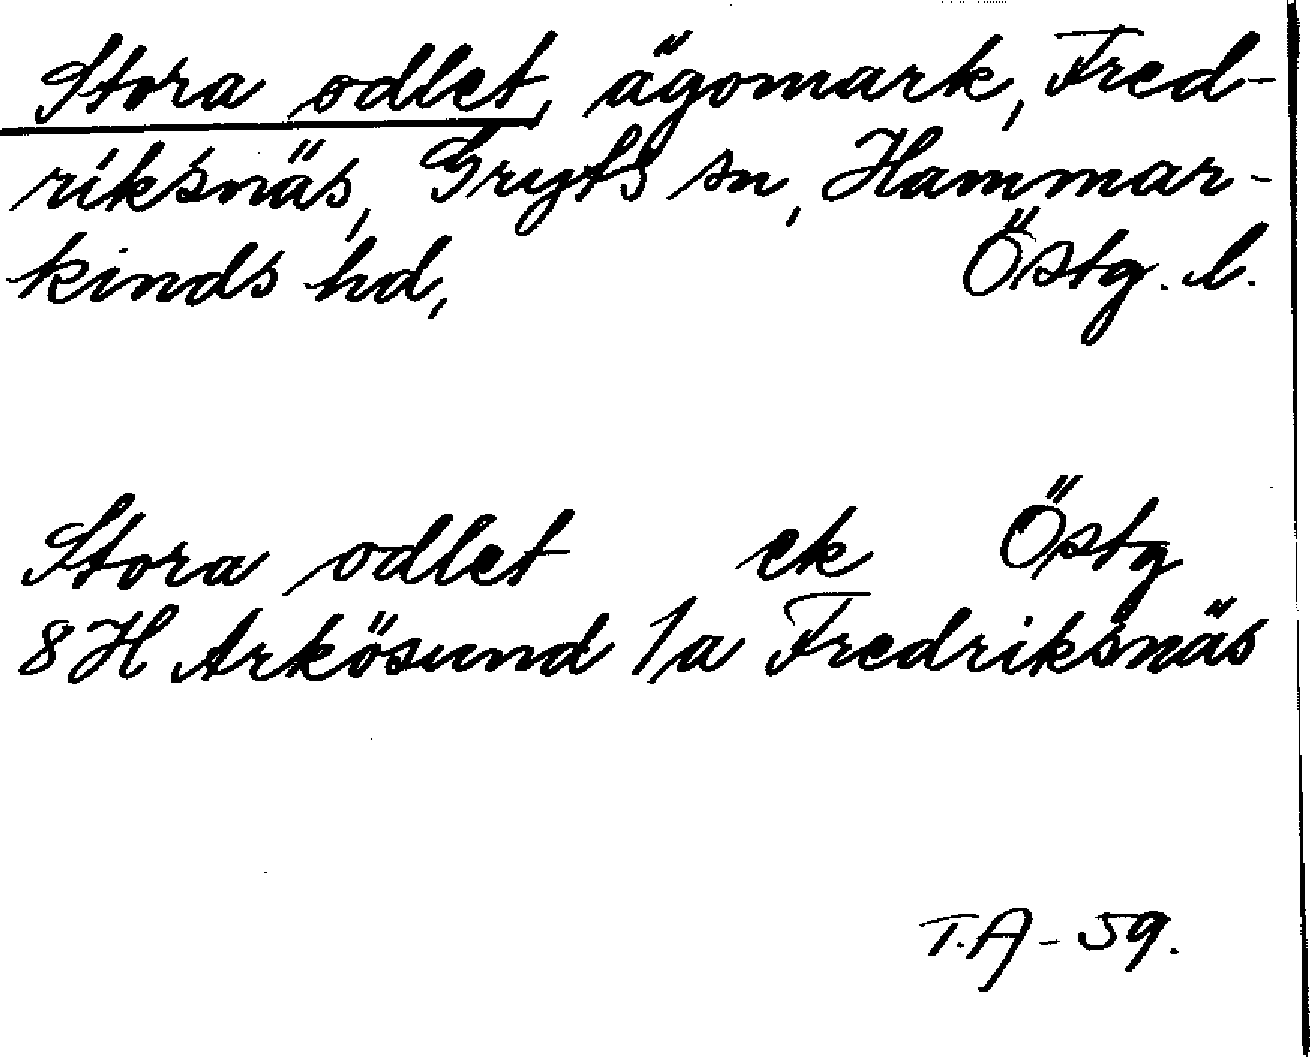 Stora odlet, ägomark, Fred-
riksnäs, Gryts sn, Hammar-
kinds hd, Östg. l.
Stora odlet ek Östg
8H Arkösund 1a Fredriksnäs
T.A - 59.